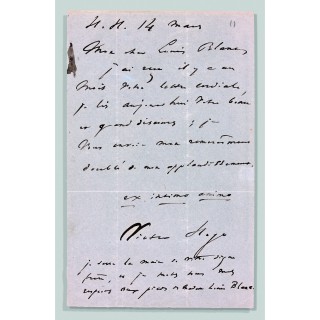 H. H. 14 mars
11
Mon cher Louis Blanc,
j'ai reçu il y a un
mois votre lettre cordiale,
je lis aujourd'hui votre beau
et grand discours, et je
vous envoie mon remerciement
doublé de mon applaudissement.
ex intimo animo
Victor Hugo
je serre la main de votre digne
frère, et je mets tous mes
respects aux pieds de Madame Louis Blanc.